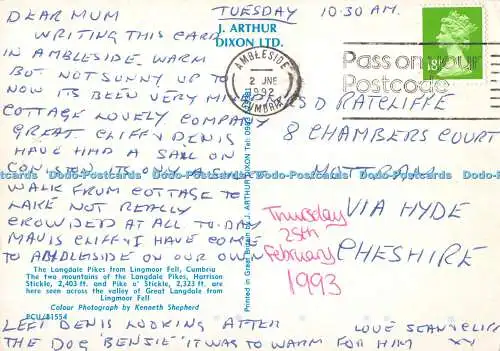 TUESDAY 10.30 AM.
DEAR MUM
WRITING THIS CARD
IN AMBLESIDE WARM
BUT NOT SUNNY UP TO
NOW ITS BEEN VERY
COTTAGE LOVELY COMPANY
GREAT CLIFFY DENIS
HAVE HAD A SAIL ON
CONISTON IT ONLY A
WALK FROM COTTAGE TO
LAKE NOT REALLY
CROWDED AT ALL TO-DAY
MAVIS CLIFFY I HAVE COME
TO AMBLESIDE ON OUR OWN
The Langdale Pikes from Lingmoor Fell, Cumbria
The two mountains of the Langdale Pikes, Harrison
Stickle, 2,403 ft. and Pike o' Stickle, 2,323 ft. are
here seen across the valley of Great Langdale from
Lingmoor Fell
Colour Photograph by Kenneth Shepherd
PCU/81554
LEFT DENIS LOOKING AFTER
THE DOG 'BENJIE' IT WAS TO WARM FOR HIM
J. ARTHUR
DIXON LTD.
Printed in Great Britain by J. ARTHUR DIXON Tel: 0983
AMBLESIDE
2 JNE
1992
CUMBRIA
Pass on your
Postcode
18
S D RATCLIFFE
8 CHAMBERS COURT
MOTTRAM
VIA HYDE
CHESHIRE
Thursday
25th
February
1993
LOVE SEAN CLIFFY
XX
Dodo-Postcards Dodo-Postcards Dodo-Postcards Dodo-Postcards Dodo-Postcards